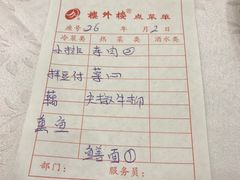 楼外楼® 点菜单
座号26 年 月2日
冷菜类 热菜类 酒水类
小排 东肉④
拌豆付 菜心
藕 尖椒牛柳
熏鱼
鳝面①
部门: 服务员: